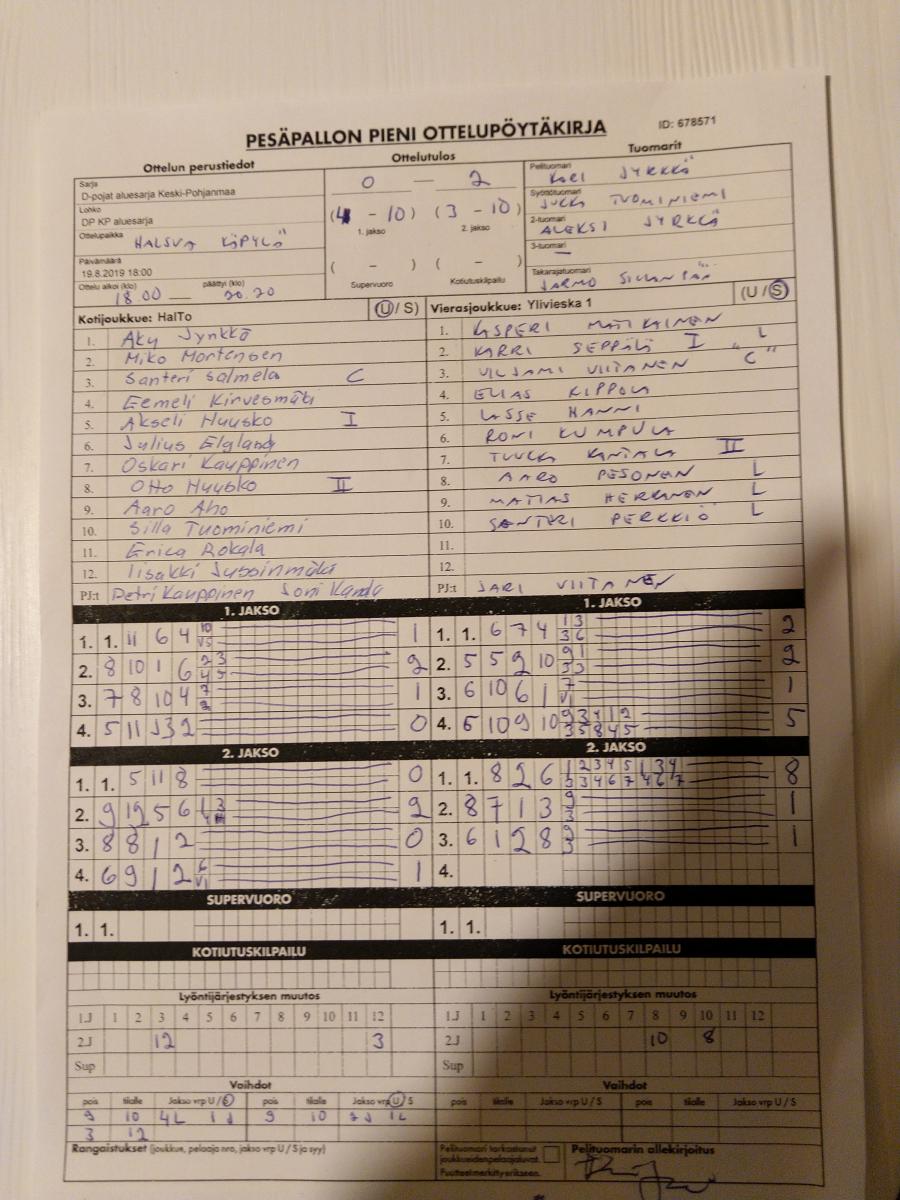 PESÄPALLON PIENI OTTELUPÖYTÄKIRJA
ID: 678571
Ottelun perustiedot
Ottelutulos
Tuomarit
Sarja
D-pojat aluesarja Keski-Pohjanmaa
Lohko
DP KP aluesarja
Ottelupaikka HALSUA KÄPYLÄ
Päivämäärä
19.8.2019 18:00
Ottelu alkoi (klo) päättyi (klo)
18.00 — 20.20
0 — 2
(4 - 10) (3 - 10)
1. jakso 2. jakso
( - ) ( - )
Supervuoro Kotiutuskilpailu
Pelituomari KARI JYRKKÄ
Syöttötuomari JUKKA TUOMINIEMI
2-tuomari ALEKSI JYRKKÄ
3-tuomari —
Takarajatuomari JARMO SILLANPÄÄ
Kotijoukkue: HalTo (U / S)
1. Aku Jynkkä
2. Miko Mortensen
3. Santeri Salmela C
4. Eemeli Kirvesmäki
5. Akseli Huusko I
6. Julius Elgland
7. Oskari Kauppinen
8. Otto Huusko II
9. Aaro Aho
10. Silla Tuominiemi
11. Erica Rokala
12. Iisakki Jussinmäki
PJ:t Petri Kauppinen Joni Kanda
Vierasjoukkue: Ylivieska 1 (U / S)
1. KASPERI MATIKAINEN
2. KARRI SEPPÄLÄ I L
3. VILJAMI VIITANEN "C"
4. ELIAS KIPPOLA
5. LASSE HANNI
6. RONI KUMPULA
7. TUUKKA KANTALA II
8. AARO PESONEN L
9. MATIAS HERRANEN L
10. SANTERI PERKKIÖ L
11.
12.
PJ:t JARI VIITANEN
1. JAKSO
1. 1. 11 6 4 1
2. 8 10 1 6 2
3. 7 8 10 4 1
4. 5 11 0
1. JAKSO
1. 1. 6 7 4 2
2. 5 5 9 10 2
3. 6 10 6 1 1
4. 6 10 9 10 5
2. JAKSO
1. 1. 5 11 8 0
2. 9 12 5 6 2
3. 8 8 1 2 0
4. 6 9 1 2 1
2. JAKSO
1. 1. 8 2 6 8
2. 8 7 1 3 1
3. 6 1 2 8 1
4.
SUPERVUORO
1. 1.
SUPERVUORO
1. 1.
KOTIUTUSKILPAILU
KOTIUTUSKILPAILU
Lyöntijärjestyksen muutos
1J 1 2 3 4 5 6 7 8 9 10 11 12
2J 12 3
Sup
Lyöntijärjestyksen muutos
1J 1 2 3 4 5 6 7 8 9 10 11 12
2J 10 8
Sup
Vaihdot
pois tilalle Jakso vrp U / S pois tilalle Jakso vrp U / S
9 10 4L 1J 9 10 2J 1L
3 12
Vaihdot
pois tilalle Jakso vrp U / S pois tilalle Jakso vrp U / S
Rangaistukset (joukkue, pelaaja nro, jakso vrp U / S ja syy)
Pelituomari tarkastanut
joukkueiden pelaajaluvat.
Puutteet merkitty erikseen.
Pelituomarin allekirjoitus